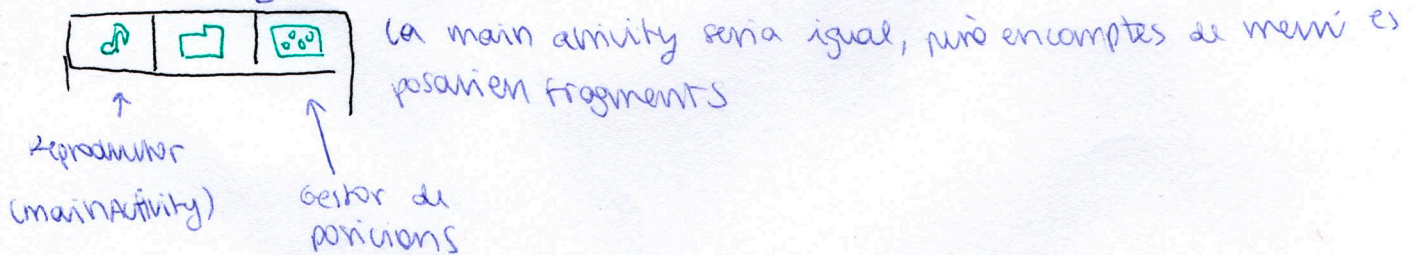 La main activity seria igual, però encomptes de menú es
posarien fragments
reproductor
(mainActivity)
Gestor de
posicions